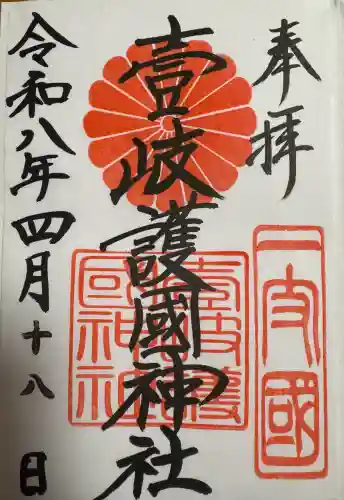 奉拝
壹岐護國神社
令和八年四月十八日
一支國
壹岐護國神社